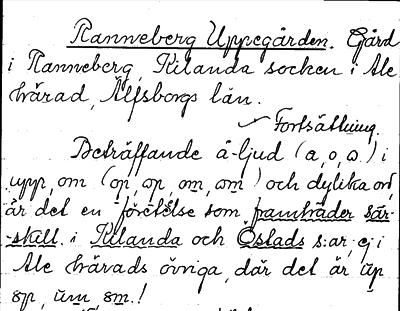 Ranneberg Uppegården. Gård
i Ranneberg, Kilanda socken i Ale
härad, Älfsborgs län.
Fortsättning.
Beträffande å-ljud (a, o, ω) i
upp, om (op, ωp, om, ωm) och dylika ord,
är det en företeelse som framträder sär-
-skilt i Kilanda och Östads s:ar, ej i
Ale härads övriga, där det är up
op, um, om.!